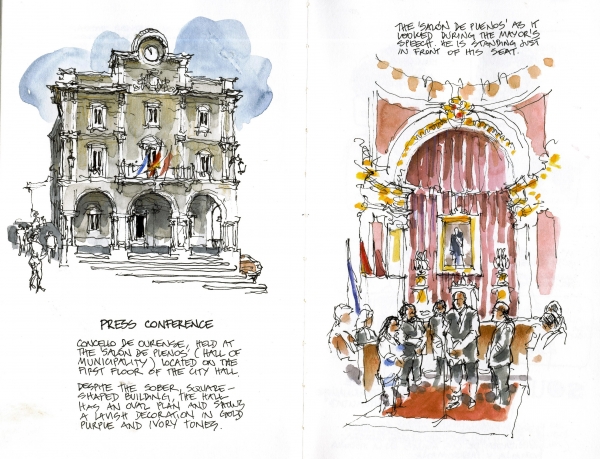 PRESS CONFERENCE
CONCELLO DE OURENSE, HELD AT
THE 'SALÓN DE PLENOS' (HALL OF
MUNICIPALITY) LOCATED ON THE
FIRST FLOOR OF THE CITY HALL.
DESPITE THE SOBER, SQUARE-
SHAPED BUILDING, THE HALL
HAS AN OVAL PLAN AND
A LAVISH DECORATION IN GOLD
PURPLE AND IVORY TONES.
THE 'SALÓN DE PLENOS' AS IT
LOOKED DURING THE MAYOR'S
SPEECH. HE IS STANDING JUST
IN FRONT OF HIS SEAT.